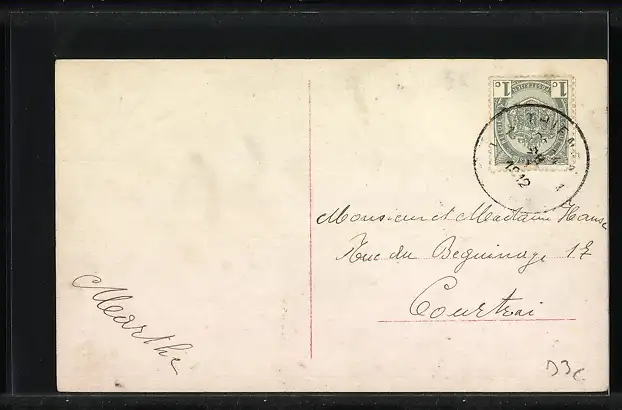 1c 1c
THIENEN
1912
Monsieur et Madame Hanse
Rue du Beguinage 17
Courtrai
Marthe